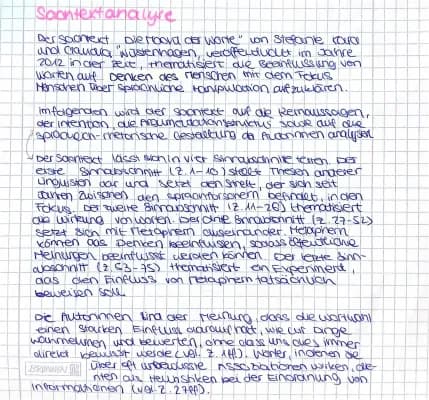 Sachtextanalyse
Der Sachtext „Die Macht der Worte" von Stefanie Kara
und Claudia Wüstenhagen, veröffentlicht im Jahre
2012 in der Zeit, thematisiert die Beeinflussung von
Worten auf Denken des Menschen mit dem Fokus
Menschen über sprachliche Manipulation aufzuklären.
Im folgenden wird der Sachtext auf die Kernaussagen,
der Intention, die Argumentationsstruktur sowie auf die
sprachlich-rhetorische Gestaltung der Autorinnen analysiert
Der Sachtext lässt sich in vier Sinnabschnitte teilen. Der
erste Sinnabschnitt (Z. 1-10) stellt Thesen anderer
Linguisten dar und setzt den Streit, der sich seit
Jahren zwischen den Sprachforschern befindet, in den
Fokus. Der zweite Sinnabschnitt (Z. 11-26) thematisiert
die Wirkung von Worten. Der dritte Sinnabschnitt (Z. 27-52)
setzt sich mit Metaphern auseinander. Metaphern
können das Denken beeinflussen, sodass öffentliche
Meinungen beeinflusst werden können. Der letzte Sinn-
abschnitt (Z. 53-75) thematisiert ein Experiment,
das den Einfluss von Metaphern tatsächlich
beweisen soll.
Die Autorinnen sind der Meinung, dass die Wortwahl
einen starken Einfluss darauf hat, wie wir Dinge
wahrnehmen und bewerten, ohne dass uns dies immer
direkt bewusst werde (vgl. Z. 1ff). Wörter, in denen sie
über oft unbewusste Assoziationen wirken, die-
nten als Heuristiken bei der Einordnung von
Informationen (vgl. Z. 27ff).